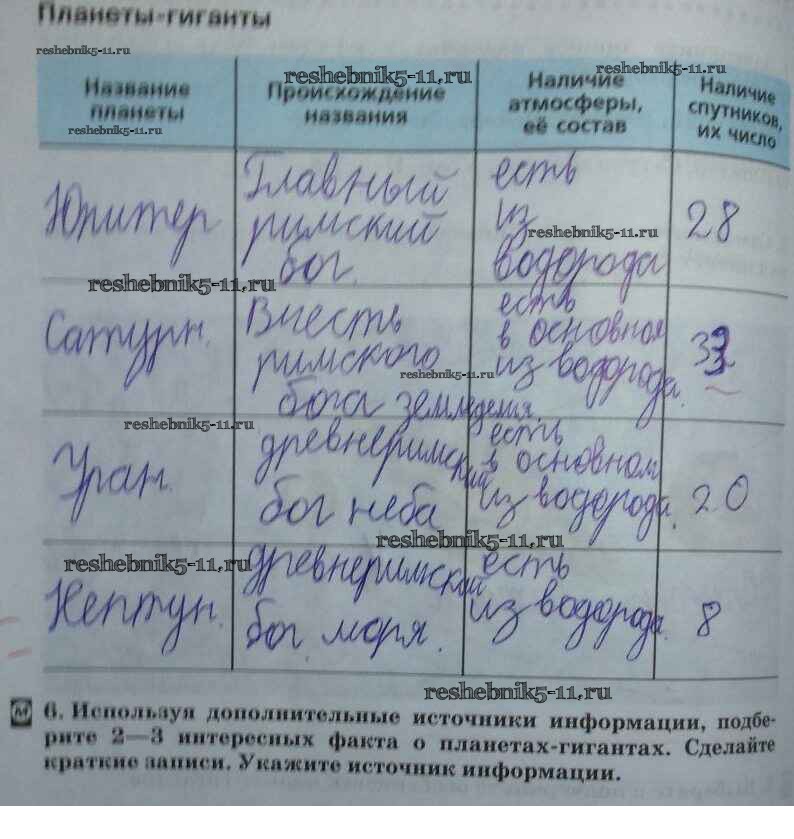 Планеты-гиганты
reshebnik5-11.ru
Название
планеты
reshebnik5-11.ru
reshebnik5-11.ru
Происхождение
названия
Наличие
атмосферы,
её состав
reshebnik5-11.ru
Наличие
спутников,
их число
Юпитер
Главный
римский
бог.
есть
из
водорода
reshebnik5-11.ru
28
reshebnik5-11.ru
Сатурн.
В честь
римского
бога земледелия.
есть
в основном
из водорода.
reshebnik5-11.ru
reshebnik5-11.ru
Уран.
древнеримский
бог неба
есть
в основном
из водорода.
20
reshebnik5-11.ru
reshebnik5-11.ru
Нептун.
древнеримский
бог моря.
есть
из водорода.
8
reshebnik5-11.ru
6. Используя дополнительные источники информации, подбе-
рите 2—3 интересных факта о планетах-гигантах. Сделайте
краткие записи. Укажите источник информации.